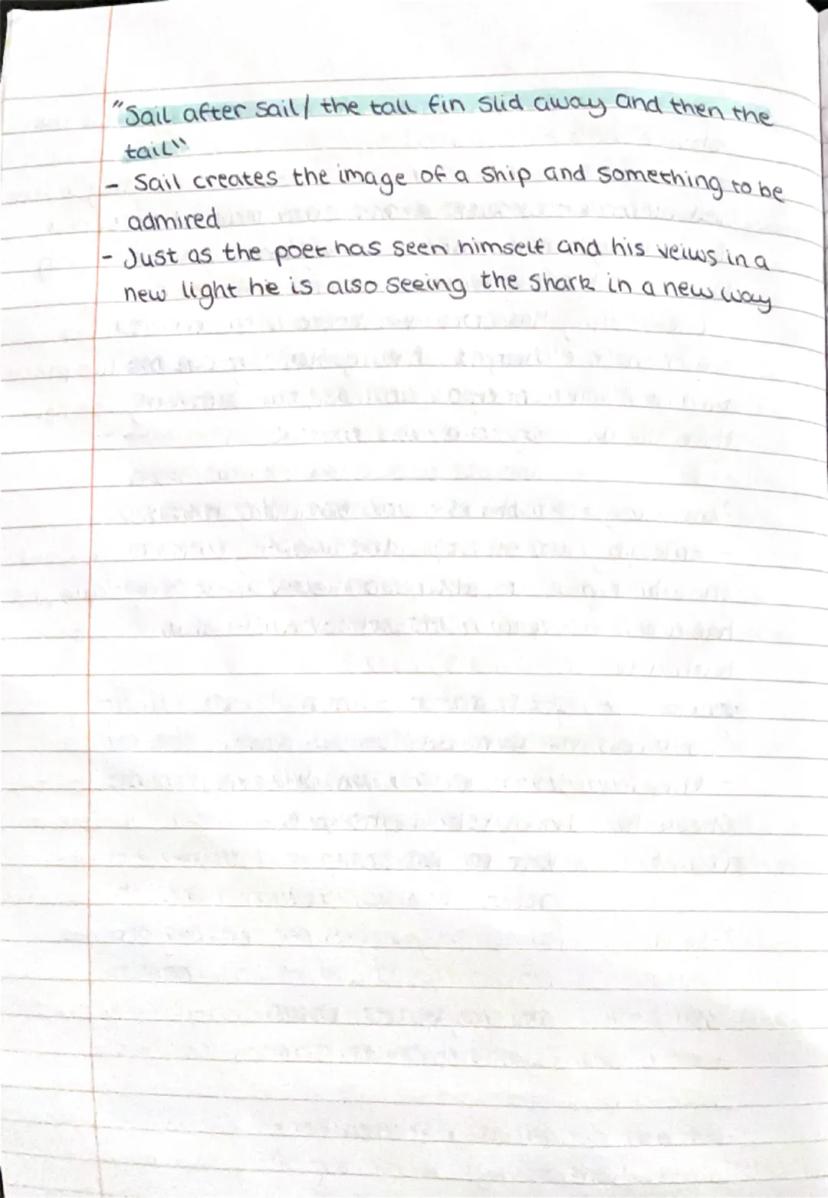 "Sail after sail/ the tall fin slid away and then the
tail"
- Sail creates the image of a ship and something to be
admired
- Just as the poet has seen himself and his veiws in a
new light he is also seeing the shark in a new way